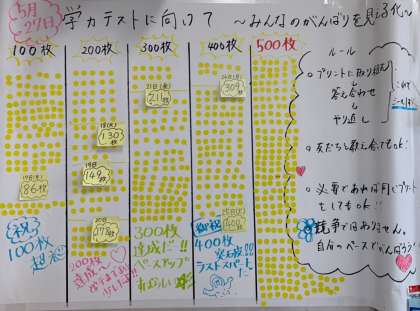 5月27日
学力テストに向けて ～みんなのがんばりを見える化～
100枚
200枚
300枚
400枚
500枚
ルール
プリントに取り組む
↓
答え合わせ
↓
やり直し
友だちと教え合ってもOK!
必要であれば同じプリント
をしてもOK!
競争ではありません。
自分のペースでがんばろう!
86枚
130枚
149枚
178枚
211枚
309枚
祝
100枚
超え
200枚
達成
300枚
達成だ!!
ペースアップ
祝
400枚
突破!!
ラストスパート
だ